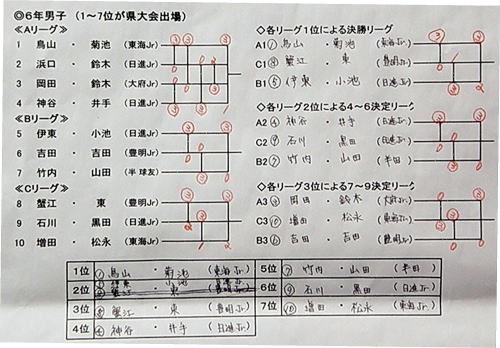 ◎6年男子 (1~7位が県大会出場)
≪Aリーグ≫
1 鳥山 ・ 菊池 (東海Jr)
2 浜口 ・ 鈴木 (日進Jr)
3 岡田 ・ 鈴木 (大府Jr)
4 神谷 ・ 井手 (日進Jr)
≪Bリーグ≫
5 伊東 ・ 小池 (日進Jr)
6 吉田 ・ 吉田 (豊明Jr)
7 竹内 ・ 山田 (半球友)
≪Cリーグ≫
8 蟹江 ・ 東 (豊明Jr)
9 石川 ・ 黒田 (日進Jr)
10 増田 ・ 松永 (東海Jr)
◇各リーグ1位による決勝リーグ
A1 ① 鳥山 ・ 菊池 (東海Jr)
C1 ⑧ 蟹江 ・ 東 (豊明Jr)
B1 ⑤ 伊東 ・ 小池 (日進Jr)
◇各リーグ2位による4~6決定リーグ
A2 ④ 神谷 ・ 井手 (日進Jr)
C2 ⑨ 石川 ・ 黒田 (日進Jr)
B2 ⑦ 竹内 ・ 山田 (半田)
◇各リーグ3位による7~9決定リーグ
A3 ③ 岡田 ・ 鈴木 (大府Jr)
C3 ⑩ 増田 ・ 松永 (東海Jr)
B3 ⑥ 吉田 ・ 吉田 (豊明Jr)
1位 ① 鳥山 ・ 菊池 (東海Jr)
2位 伊東 小池
3位 ⑧ 蟹江 ・ 東 (豊明Jr)
4位 ④ 神谷 ・ 井手 (日進Jr)
5位 ⑦ 竹内 ・ 山田 (半田)
6位 ⑨ 石川 ・ 黒田 (日進Jr)
7位 ⑩ 増田 ・ 松永 (東海Jr)